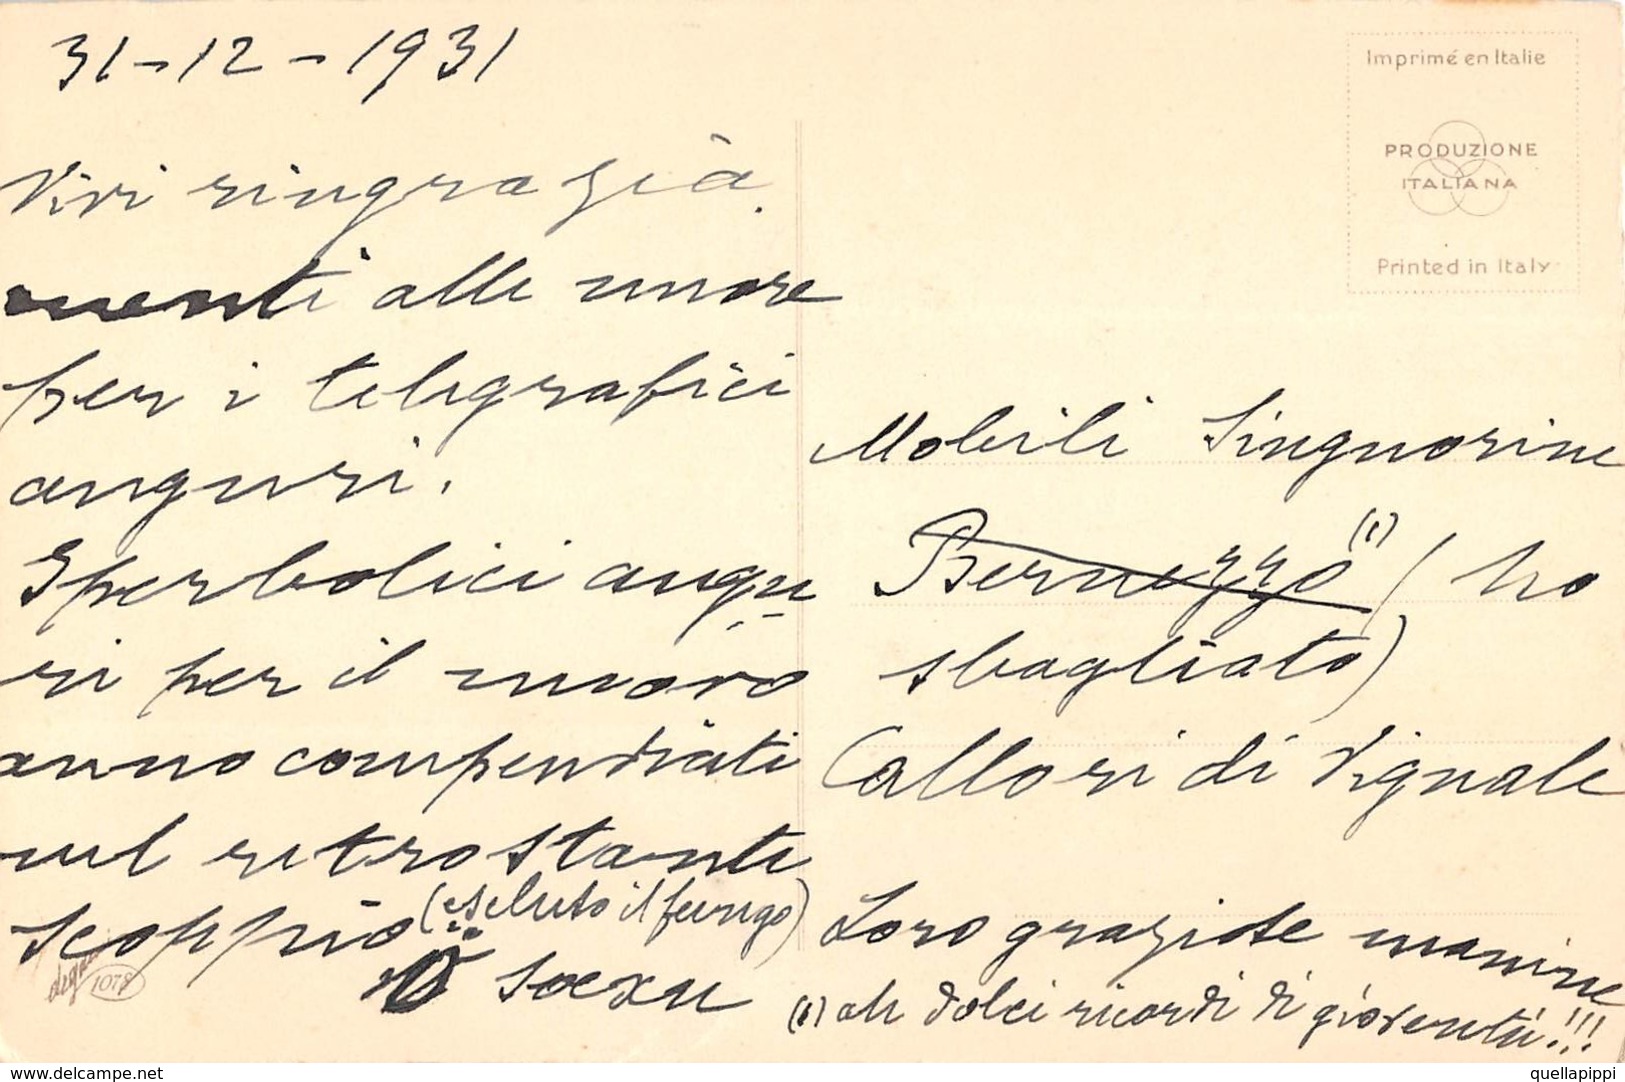 31-12-1931
Vivi ringrazia
menti alle nuore
per i telegrafici
auguri.
Iperbolici augu
ri per il nuovo
anno compendiati
nel retrostante
scoppio (escluso il fungo)
Imprimé en Italie
PRODUZIONE
ITALIANA
Printed in Italy
Nobili Singnorine
Bernezzo (1) (ho
sbagliato)
Callori di Vignale
Loro graziose manine
(1) oh dolci ricordi di gioventù!!!
1078
www.delcampe.net
quellapippi